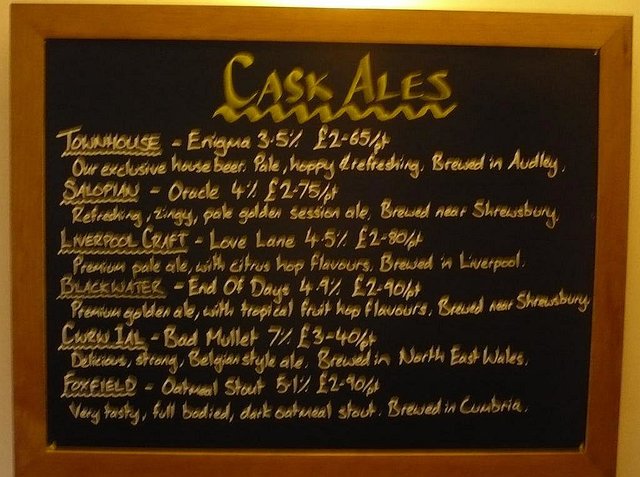 CASK ALES
TOWNHOUSE - Enigma 3.5% £2-65/pt
Our exclusive house beer. Pale, hoppy & refreshing. Brewed in Audley.
SALOPIAN - Oracle 4% £2-75/pt
Refreshing, zingy, pale golden session ale. Brewed near Shrewsbury.
LIVERPOOL CRAFT - Love Lane 4.5% £2-80/pt
Premium pale ale, with citrus hop flavours. Brewed in Liverpool.
BLACKWATER - End Of Days 4.9% £2-90/pt
Premium golden ale, with tropical fruit hop flavours. Brewed near Shrewsbury
CWRW IAL - Bad Mullet 7% £3-40/pt
Delicious, strong, Belgian style ale. Brewed in North East Wales.
FOXFIELD - Oatmeal Stout 5.1% £2-90/pt
Very tasty, full bodied, dark oatmeal stout. Brewed in Cumbria.